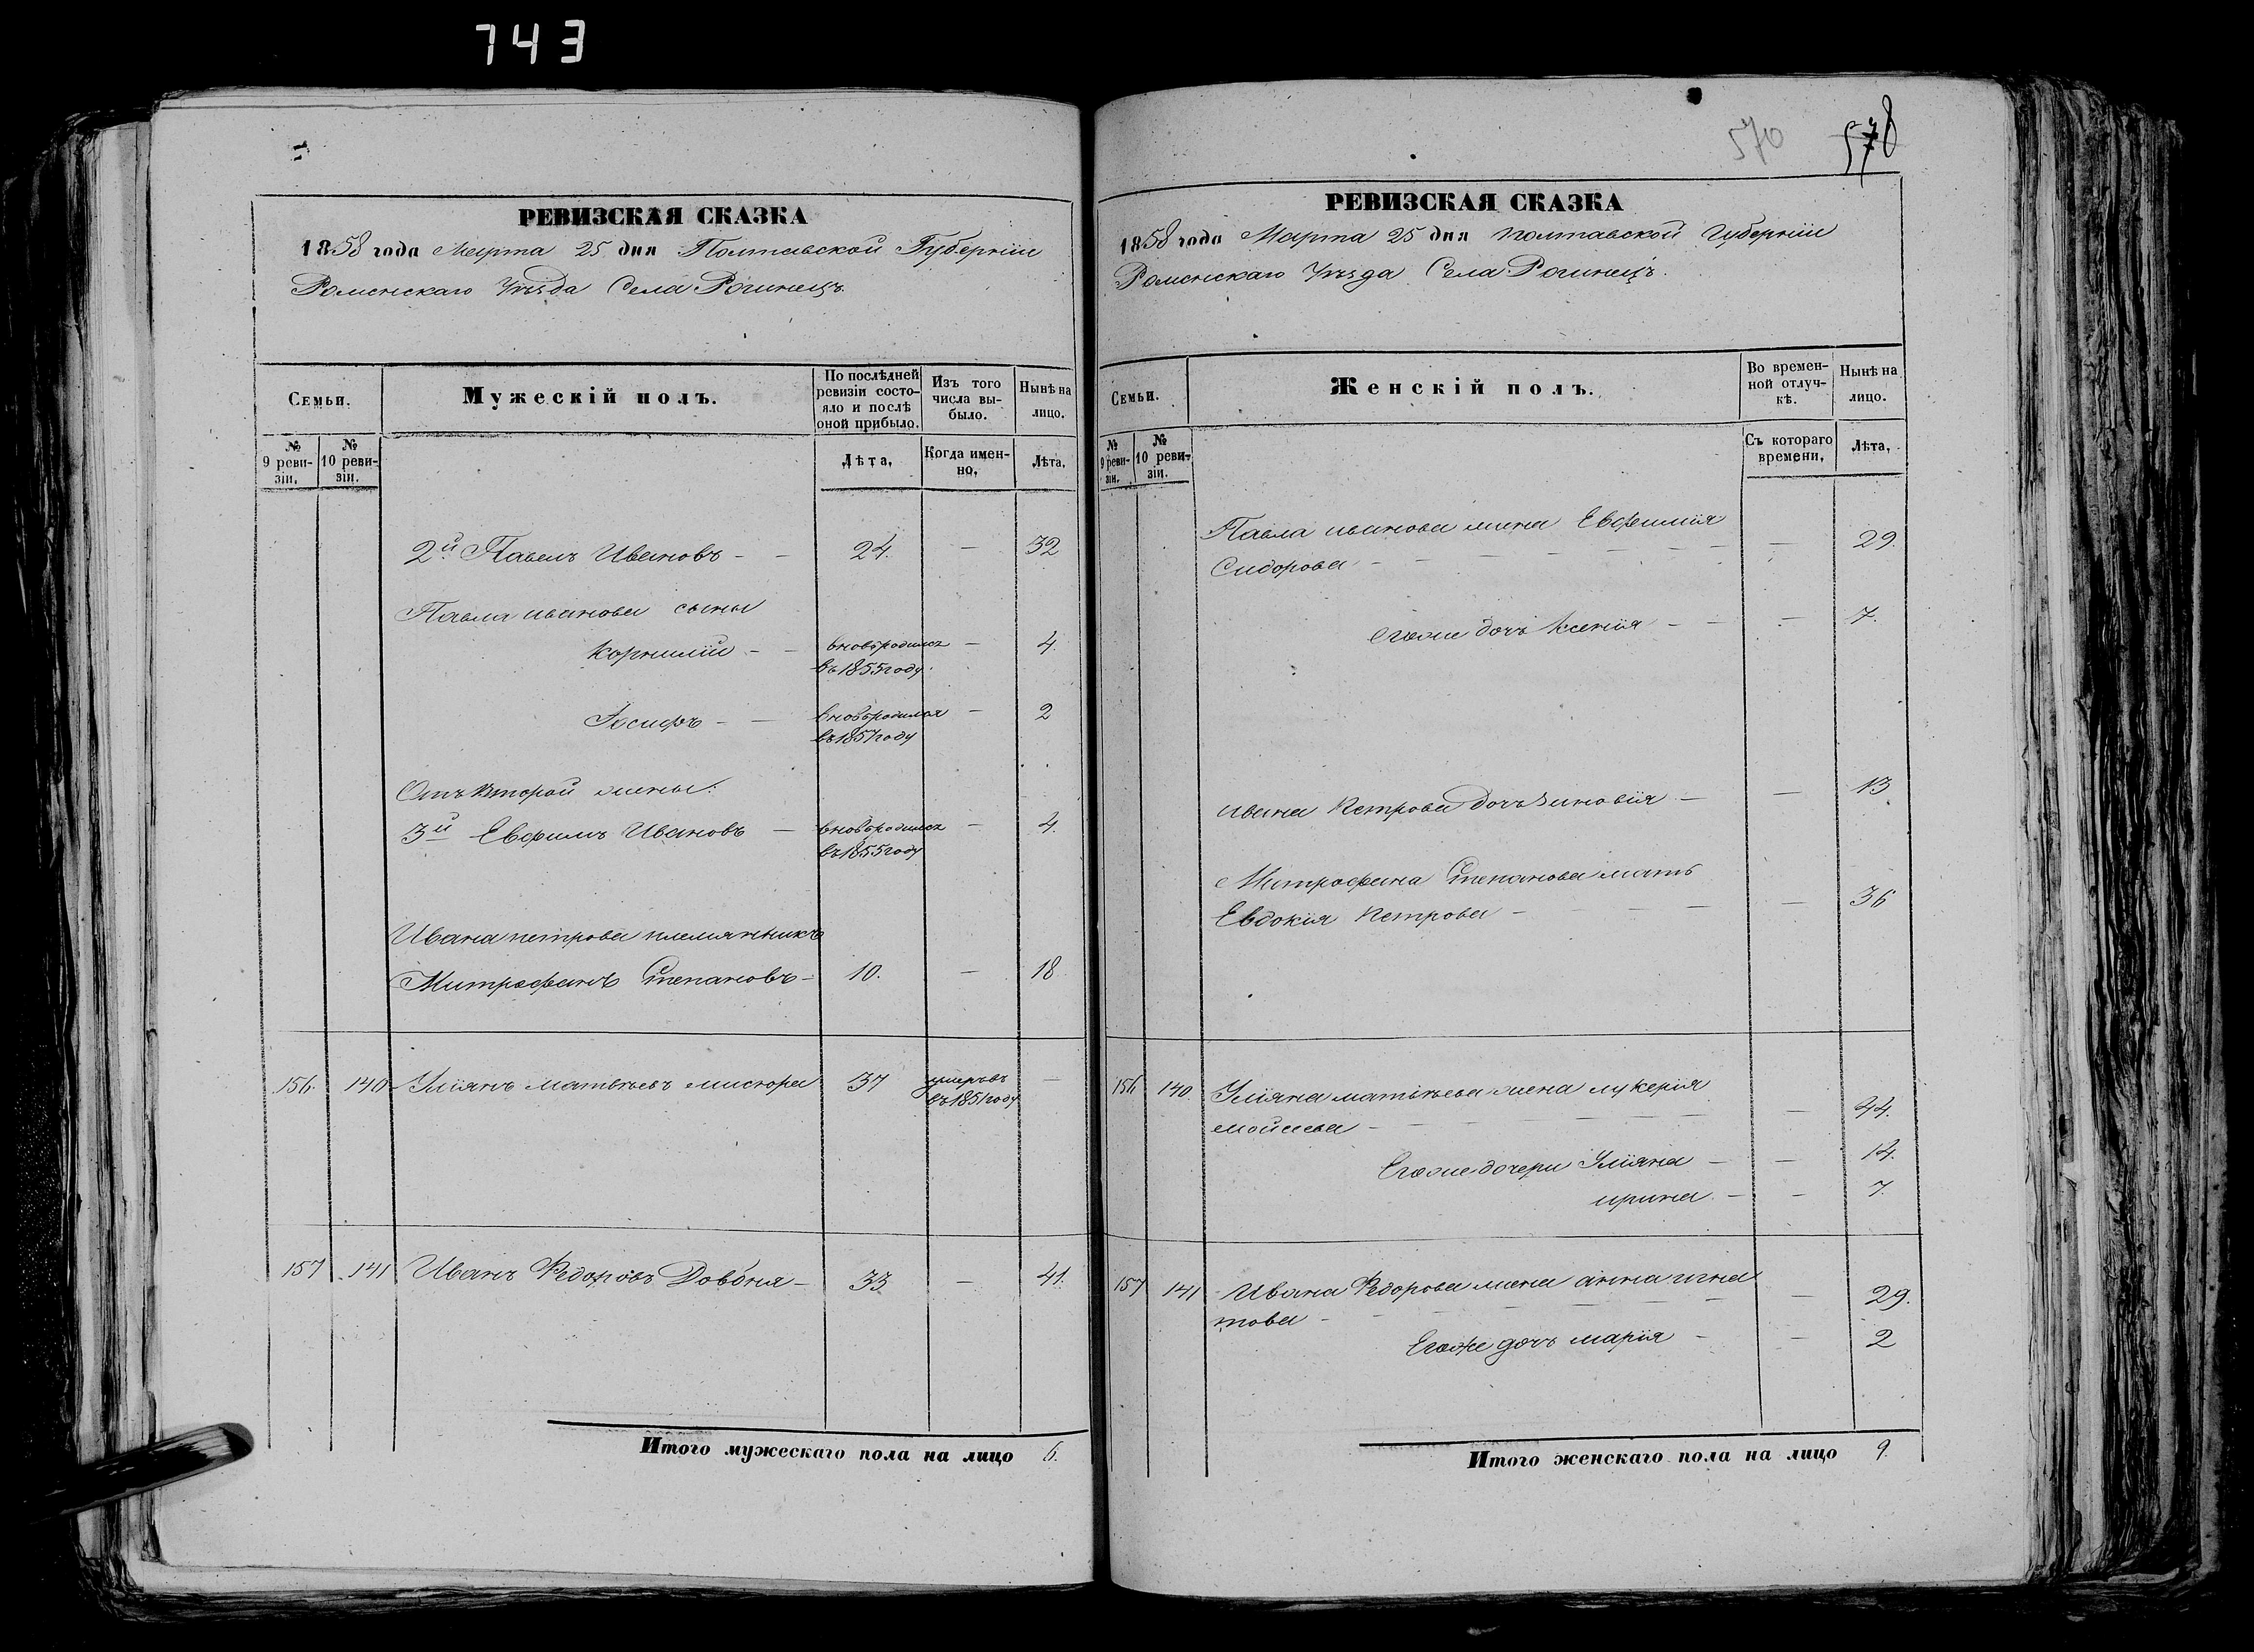 743
РЕВИЗСКАЯ СКАЗКА
1858 года Марта 25 дня Полтавской Губерніи
Роменскаго Уѣзда Села Рогинецъ.
Семьи.
Мужескій полъ.
По послѣдней ревизіи состояло и послѣ оной прибыло.
Изъ того числа выбыло.
Нынѣ на лицо.
№ 9 ревизіи.
№ 10 ревизіи.
Лѣта,
Когда именно,
Лѣта,
2й Павелъ Ивановъ - - 24. — 32
Павла иванова сыны
Корнилій - - вновьродился — 4.
въ 1855 году.
Іосифъ - — вновьродился — 2
въ 1857 году
Отъ второй жены:
3й Евфимъ Ивановъ — вновьродился — 4.
въ 1855 году
Ивана петрова племянникъ
Митрофанъ Степановъ - 10. — 18
156. 140 Уліянъ матвѣевъ мисюра 37 умеръ въ —
въ 1851 году
157 141 Иванъ Федоровъ Довбня - 33 — 41.
Итого мужескаго пола на лицо 6.
570 578
РЕВИЗСКАЯ СКАЗКА
1858 года Марта 25 дня полтавской Губерніи
Роменскаго Уѣзда Села Рогинецъ.
Семьи.
Женскій полъ.
Во временной отлучкѣ.
Нынѣ на лицо.
№ 9 ревизіи.
№ 10 ревизіи.
Съ котораго времени,
Лѣта,
Павла иванова жена Евфимія
Сидорова - — 29.
Егоже дочь Ксенія - — 7.
ивана Петрова дочь Зиновія — — 13
Митрофана Степанова мать
Евдокія Петрова - — 36
156 140. Уліяна матвѣева жена лукерія
мойсеева - — 44.
Егоже дочери Уліяна — — 14.
ирина. - — 7.
157 141 Ивана Федорова жена анна игна
това - — 29.
Егоже дочь марія - — 2
Итого женскаго пола на лицо 9.